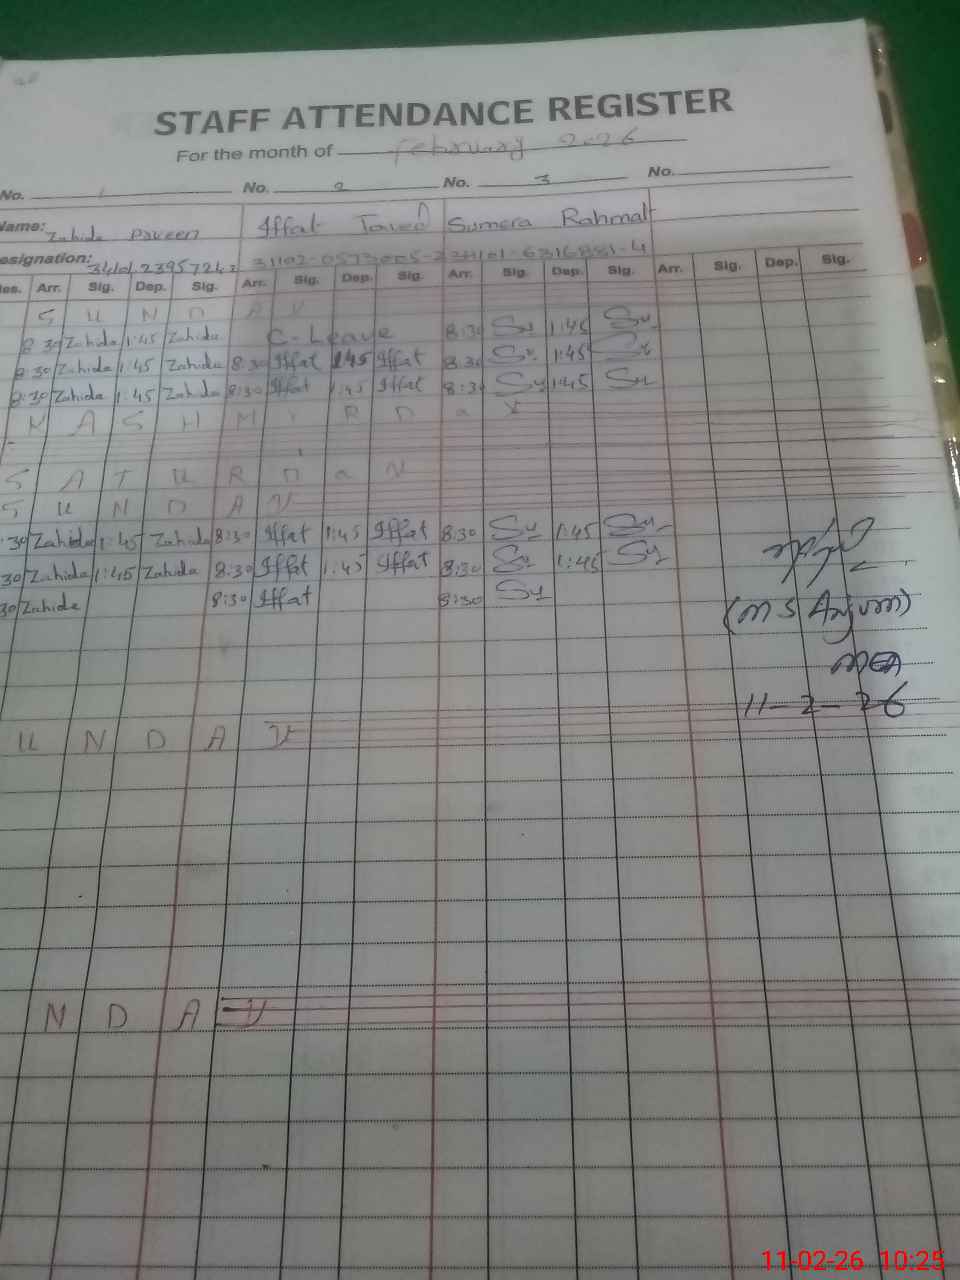 STAFF ATTENDANCE REGISTER
For the month of February 2026
No. 1 No. 2 No. 3 No.
Name: Zahida Parveen Iffat Javed Sumera Rahmat
esignation:
es. Arr. Sig. Dep. Sig. Arr. Sig. Dep. Sig. Arr. Sig. Dep. Sig. Arr. Sig. Dep. Sig.
S U N D A Y
8:30 Zahida 1:45 Zahida C-Leave 8:30 Su 1:45 Su
8:30 Zahida 1:45 Zahida 8:30 Iffat 1:45 Iffat 8:30 Su 1:45 Su
8:30 Zahida 1:45 Zahida 8:30 Iffat 1:45 Iffat 8:30 Su 1:45 Su
K A S H M I R D a Y
S A T U R D a Y
S U N D A Y
30 Zahida 1:45 Zahida 8:30 Iffat 1:45 Iffat 8:30 Su 1:45 Su
30 Zahida 1:45 Zahida 8:30 Iffat 1:45 Iffat 8:30 Su 1:45 Su
30 Zahida 8:30 Iffat 8:30 Su
(M S Anjum)
MEA
11-2-26
U N D A Y
N D A Y
11-02-26 10:25